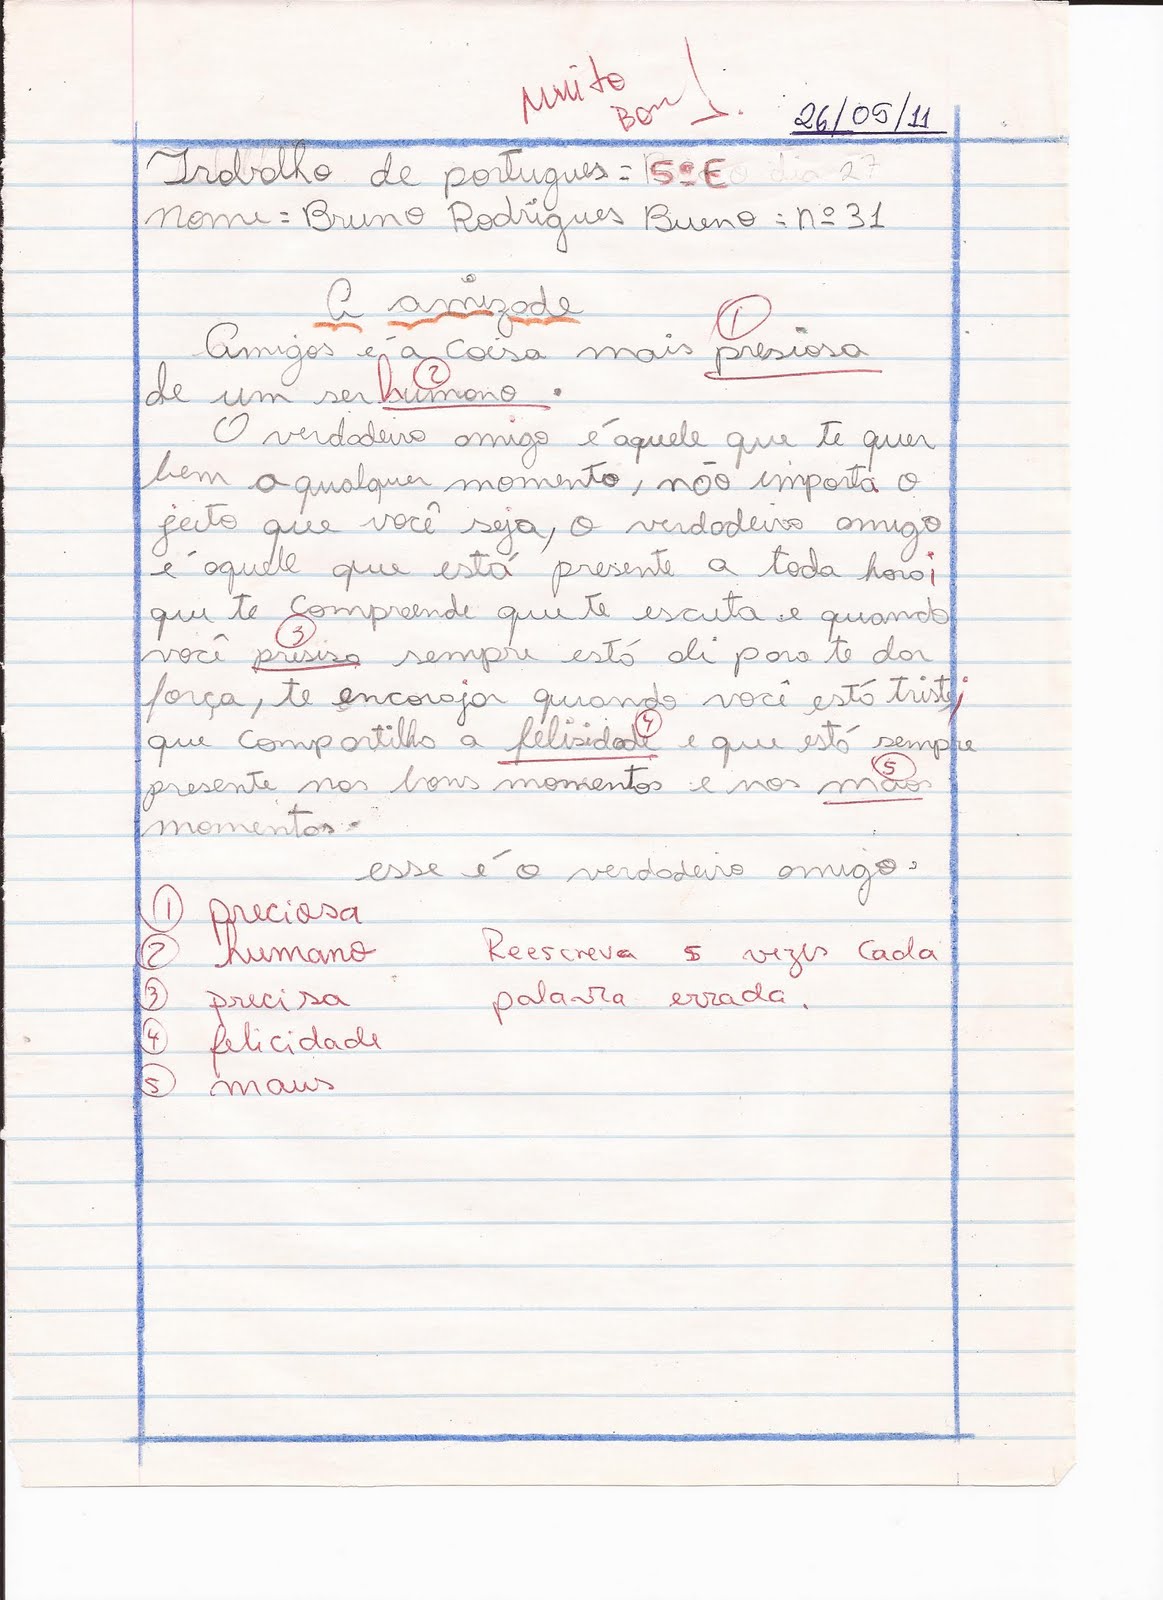 Muito
Bom!
26/05/11
Trabalho de portugues = 5ª E dia 27
nome = Bruno Rodrigues Bueno = nº 31
A amizade
1
Amigos é a coisa mais presiosa
2
de um ser humano.
O verdadeiro amigo é aquele que te quer
bem a qualquer momento, não importa o
jeito que você seja, o verdadeiro amigo
é aquele que está presente a toda hora;
que te compreende que te escuta e quando
3
você presisa sempre está ali para te dar
força, te encorajar quando você está triste;
4
que compartilha a felisidade e que está sempre
5
presente nos bons momentos e nos maos
momentos.
esse é o verdadeiro amigo.
1 preciosa
2 humano Reescreva 5 vezes cada
3 precisa palavra errada.
4 felicidade
5 maus